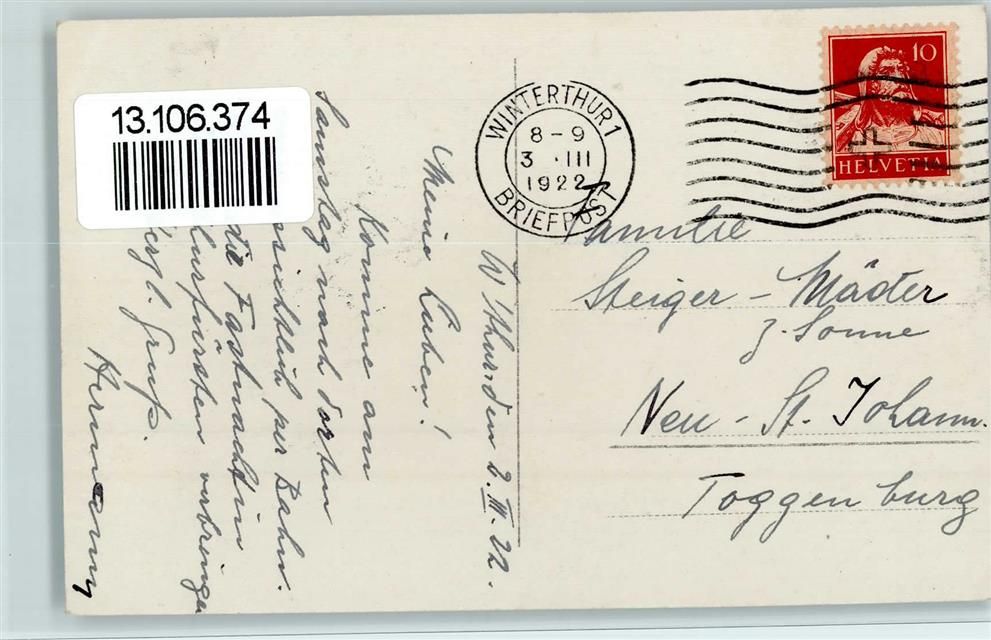 13.106.374
WINTERTHUR 1
8-9
3 . III
1922
BRIEFPOST
10
HELVETIA
W'thur, den 2. III. 22.
Meine Lieben!
Komme am
Samstag nach dorten
per Bahn.
die Fastnacht in
verbringen
Herzl. Gruß.
Hermann
Familie
Steiger - Mäder
z. Sonne
Neu - St. Johann.
Toggenburg